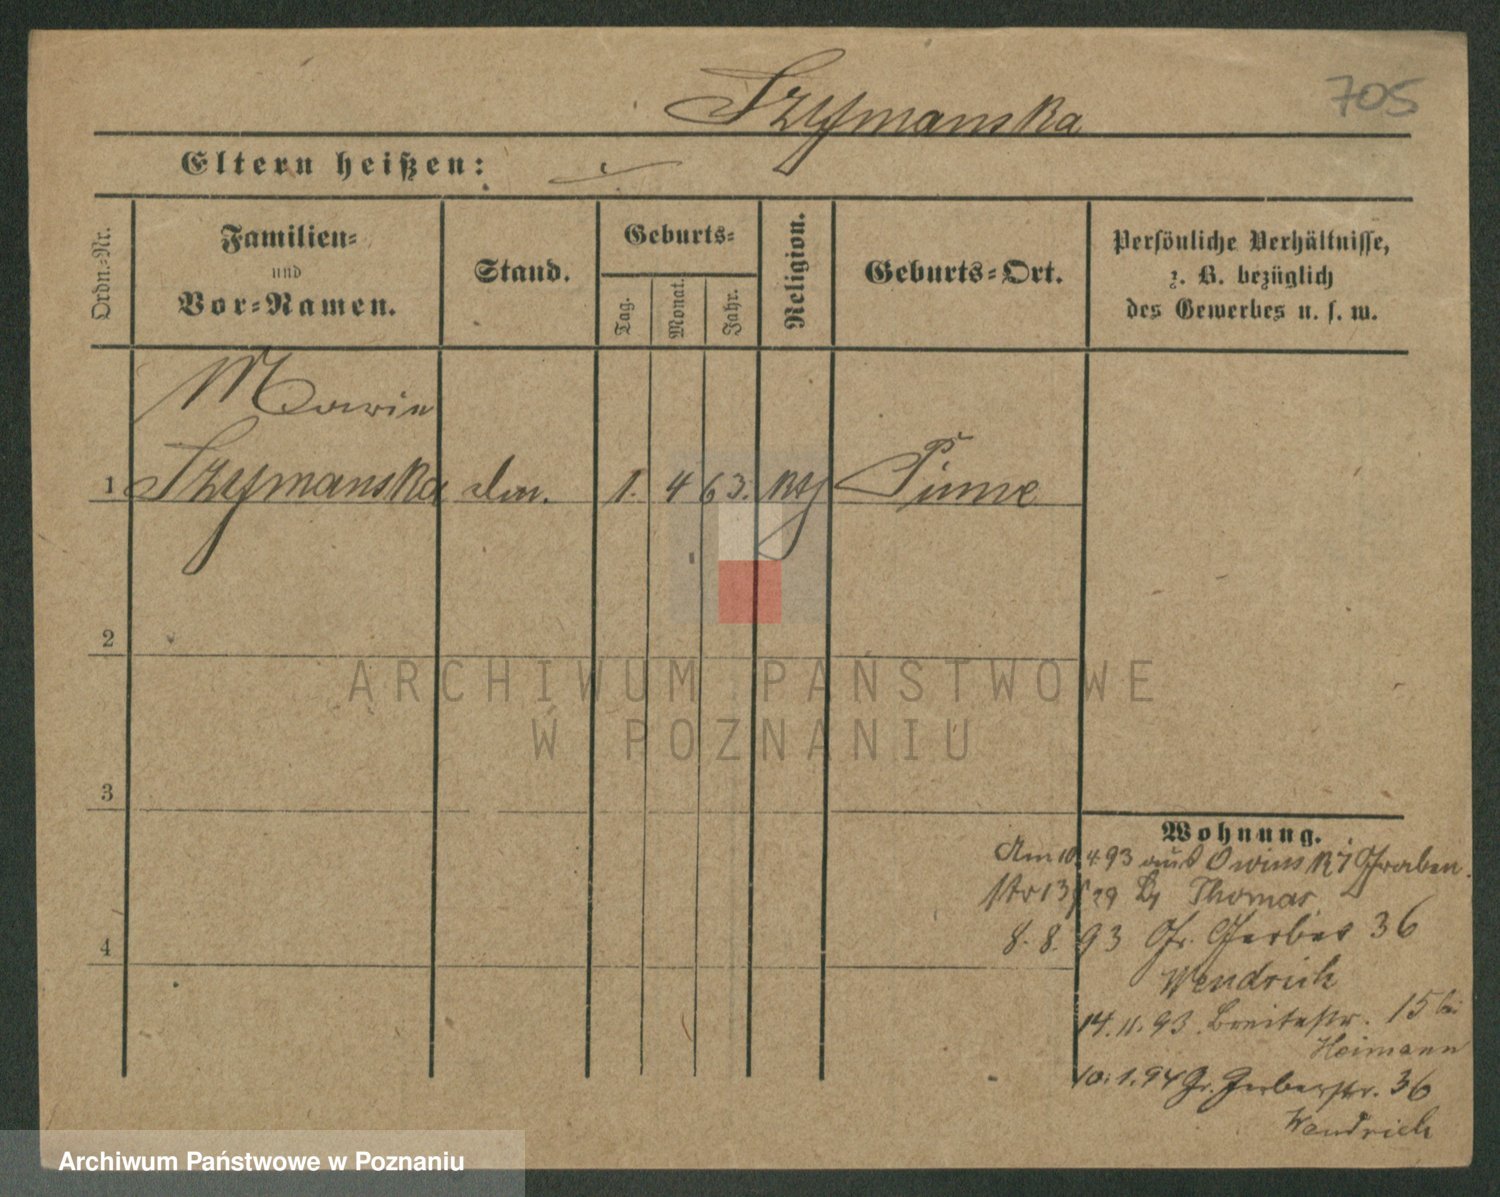 Szymanska
705
Eltern heißen:
Ordn.-Nr.
Familien-
und
Vor-Namen.
Stand.
Geburts-
Tag.
Monat.
Jahr.
Religion.
Geburts-Ort.
Persönliche Verhältnisse,
z. B. bezüglich
des Gewerbes u. s. w.
Marie
1 Szymanska 1. 4 63. Pinne
2
ARCHIWUM PAŃSTWOWE
W POZNANIU
3
Wohnung.
Am 10.4 93 aus Owinsk Graben
str 13 Thomas
8. 8. 93 Gr. Gerber 36
Wendrich
14. 11. 93. Breitestr. 15 bei
Heimann
10. 1. 94 Gr. Gerberstr. 36
Wendrich
4
Archiwum Państwowe w Poznaniu